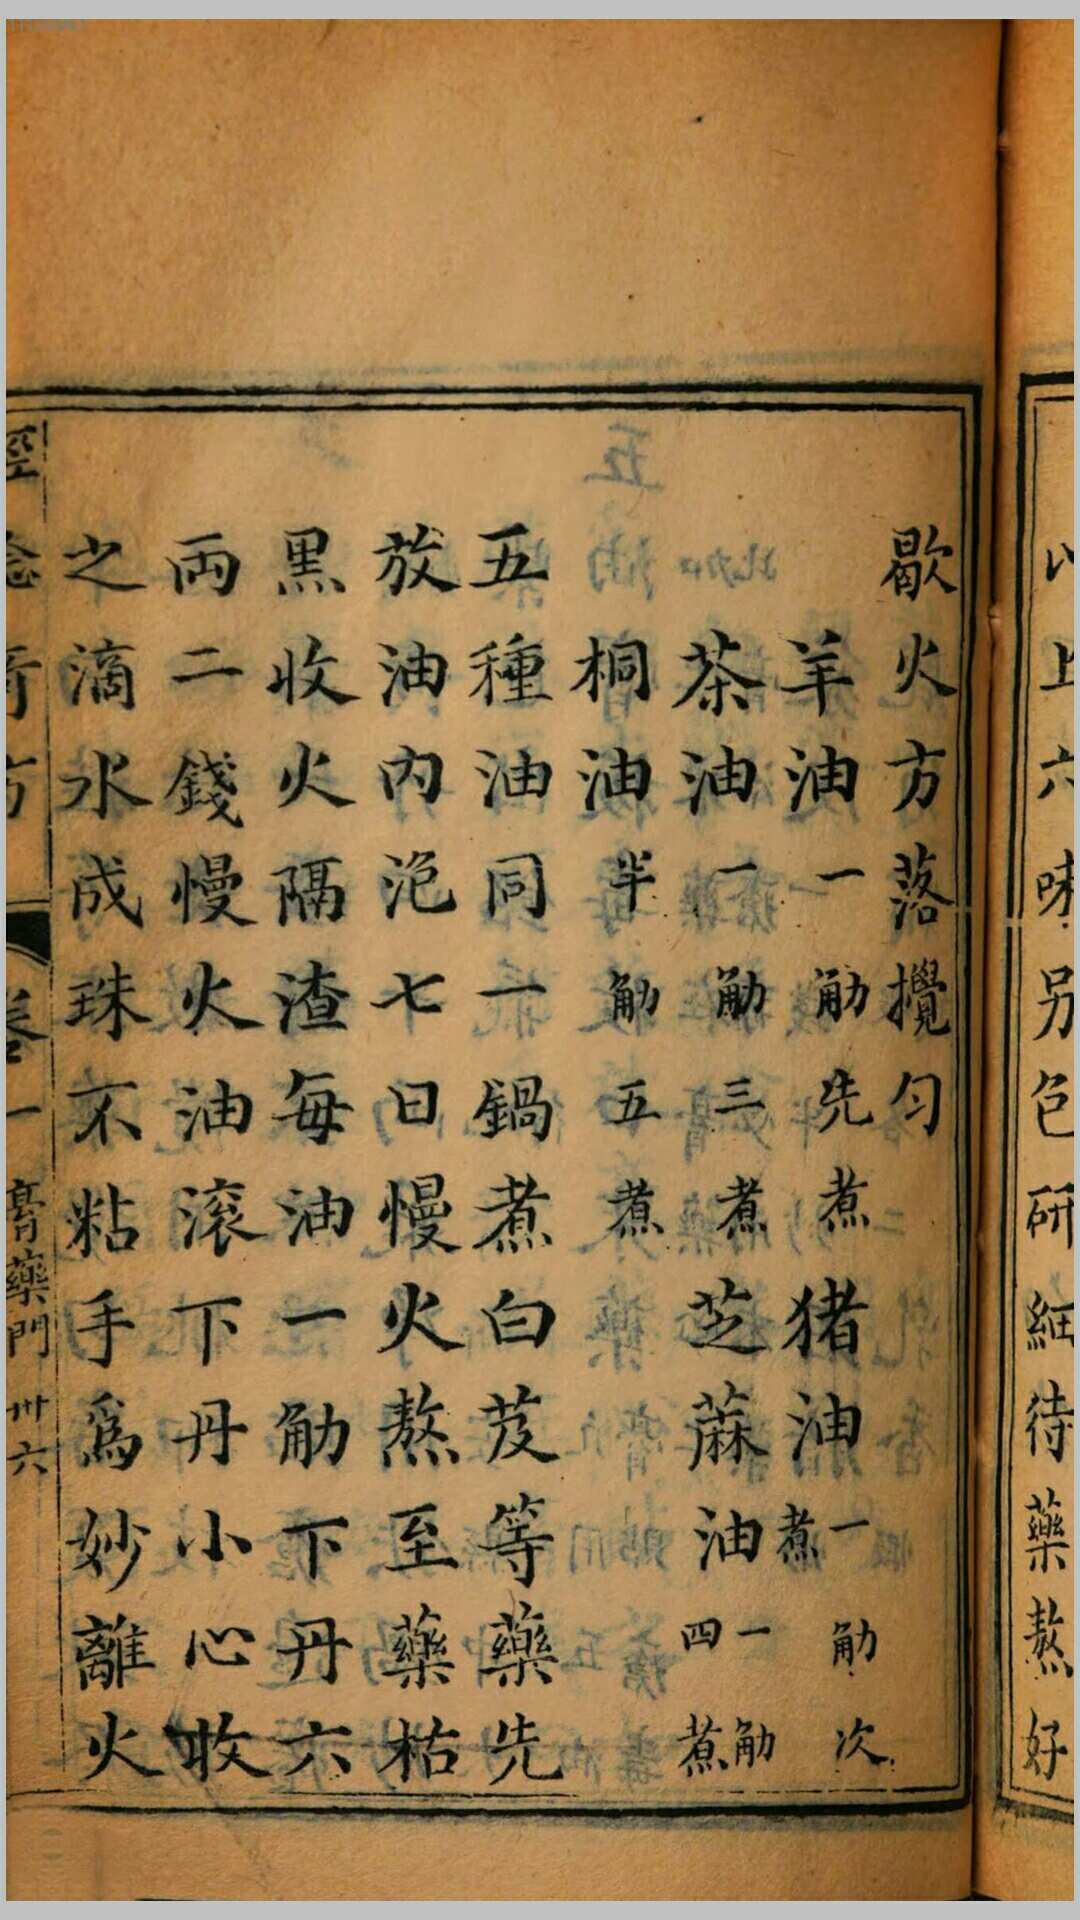 以上六味另色研細待藥熬好
歇火方落攪勻
羊油一觔先煮猪油一觔次煮
茶油一觔三煮芝蔴油一觔四煮
桐油半觔五煮
五種油同一鍋煮白芨等藥先
放油內浥七日慢火熬至藥枯
黑收火隔渣每油一觔下丹六
両二錢慢火油滚下丹小心收
之滴水成珠不粘手爲妙離火
奇方 卷一 膏藥門 卅六